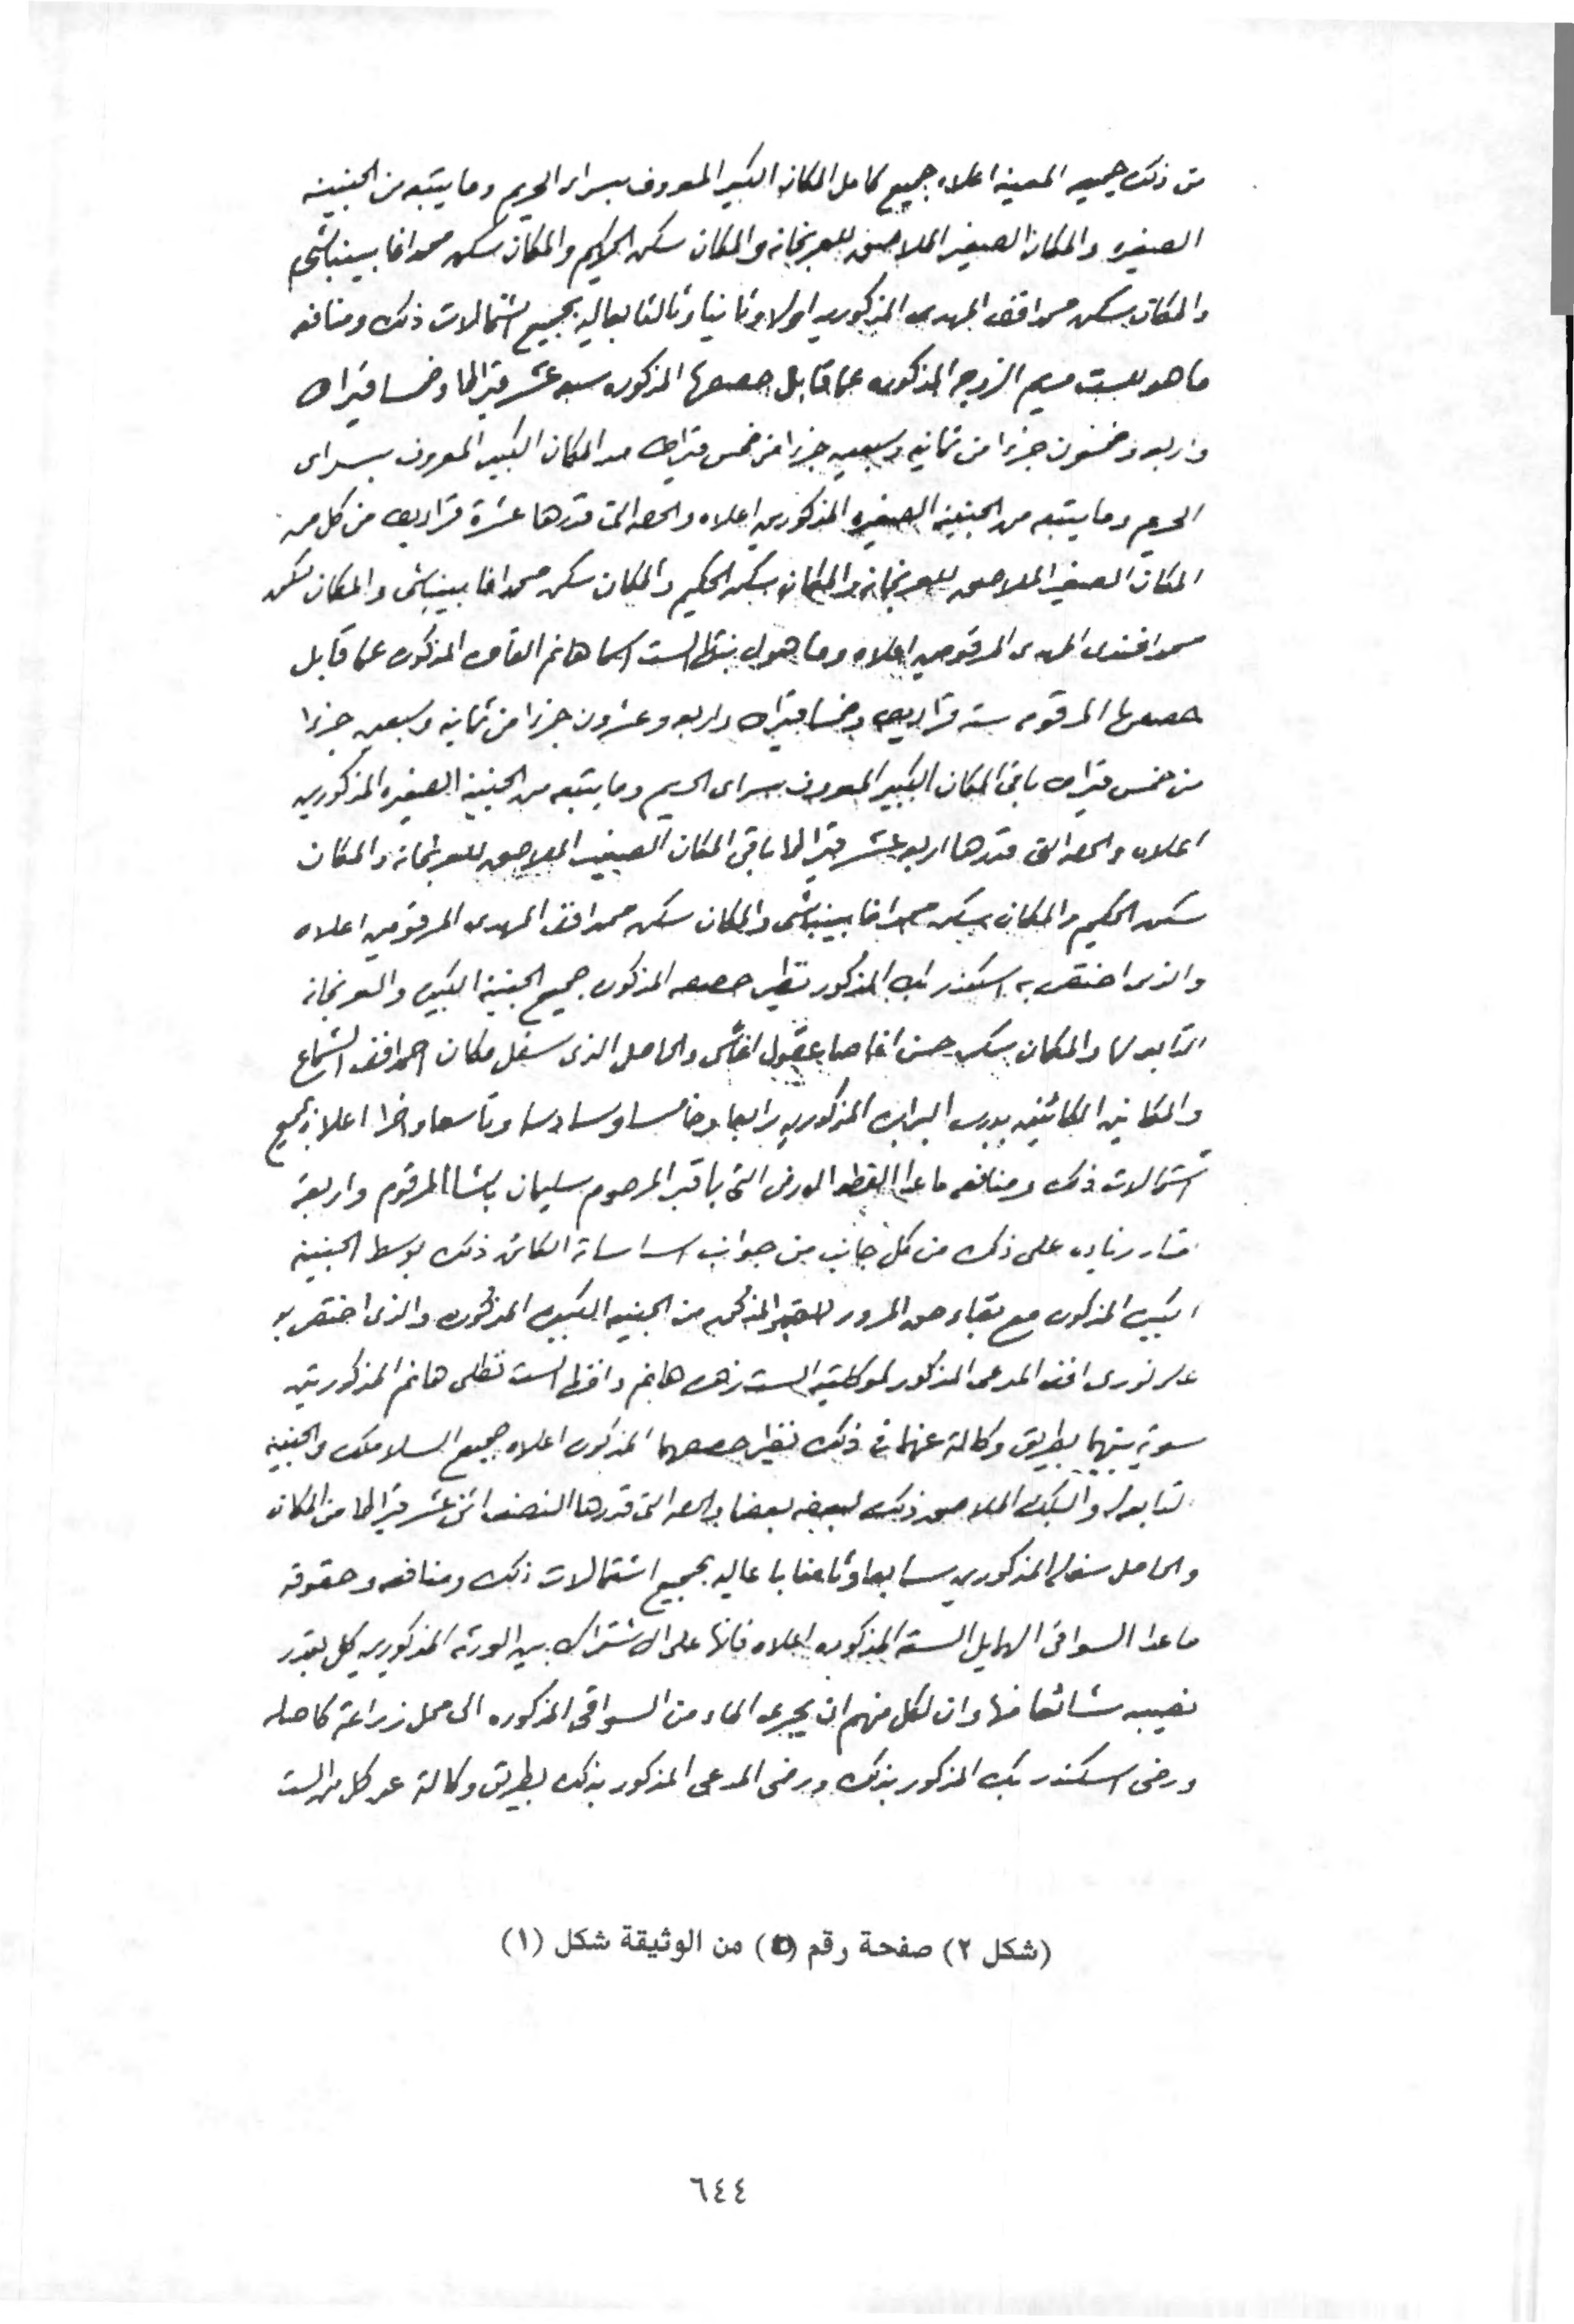 من ذلك جميعه المعينه اعلاه جميع كامل المكان الكبير المعروف بسراى الحريم وما يتبعه من الجنينه
الصغيره والمكان الصغير الملاصق للعربخانه والمكان سكن الحكيم والمكان سكن محمد اغا بينباشى
والمكان سكن محمد افندى المهدى المذكورين اولا وثانيا وثالثا بعاليه بجميع اشتمالات ذلك ومنافعه
ما هو للست مريم الزوجه المذكوره عما قابل حصصها المذكوره سبعة عشر قيراطا وخمسا قيراط
واربعه وخمسون جزءا من ثمانيه وسبعين جزءا من خمس قيراط من المكان الكبير المعروف بسراى
الحريم وما يتبعه من الجنينه الصغيره المذكورين اعلاه والحصه التى قدرها عشرة قراريط من كل من
المكان الصغير الملاصق للعربخانه والمكان سكن الحكيم والمكان سكن محمد اغا بينباشى والمكان سكن
محمد افندى المهدى المرقومين اعلاه وما هو لبنتها الست اسما هانم القاصر المذكوره عما قابل
حصصها المرقومه سته قراريط وخمسا قيراط واربعه وعشرون جزءا من ثمانيه وسبعين جزءا
من خمس قيراط باقى المكان الكبير المعروف بسراى الحريم وما يتبعه من الجنينه الصغيره المذكورين
اعلاه والحصه التى قدرها اربعه عشر قيراطا باقى المكان الصغير الملاصق للعربخانه والمكان
سكن الحكيم والمكان سكن محمد اغا بينباشى والمكان سكن محمد افندى المهدى المرقومين اعلاه
والذى اختص به اسكندر بك المذكور نظير حصصه المذكوره جميع الجنينه الكبيره والعربخانه
التابعه لها والمكان سكن حسن اغا صارعقول اغاسى والحاصل الذى سفل مكان احمد افندى الشماع
والمكانين الكائنين بدرب البرابره المذكورين رابعا وخامسا وسادسا وتاسعا واخرا اعلاه بجميع
اشتمالات ذلك ومنافعه ما عدا القطعه الارض التى بها قبر المرحوم سليمان باشا المرقوم واربعة
امتار زياده على ذلك من كل جانب من جوانب اساساته الكائن ذلك بوسط الجنينه
الكبيره المذكوره مع بقاء حق المرور للقبر المذكور من الجنينه الكبيره المذكوره والذى اختص به
على نورى افندى المدعى المذكور لموكلتيه الست زهره هانم واختها الست نظلى هانم المذكورتين
سوية بينهما بطريق وكالته عنهما فى ذلك نظير حصصهما المذكوره اعلاه جميع السلاملك والجنينه
التابعه له والسلاملك الملاصق ذلك لبعضه بعضا والحصه التى قدرها النصف اثنى عشر قيراطا من المكان
والحاصل سفله المذكورين سابعا وثامنا باعاليه بجميع اشتمالات ذلك ومنافعه وحقوقه
ما عدا السواقى الهدايل الستة المذكوره اعلاه فانها على الاشتراك بين الورثه المذكورين كل بقدر
نصيبه شائعا فيها وان لكل منهم ان يجرى الماء من السواقى المذكوره الى محل زراعته كاصله
ورضى اسكندر بك المذكور بذلك ورضى المدعى المذكور بذلك بطريق وكالته عن كل من الست
(شكل ٢) صفحة رقم (٥) من الوثيقة شكل (١)
٦٤٤